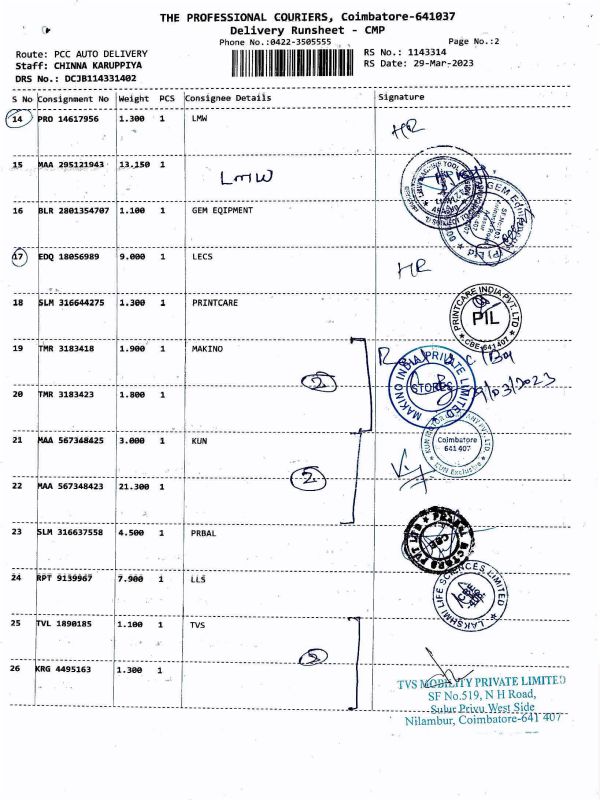 THE PROFESSIONAL COURIERS, Coimbatore-641037
Delivery Runsheet - CMP
Phone No.:0422-3505555 Page No.:2
Route: PCC AUTO DELIVERY RS No.: 1143314
Staff: CHINNA KARUPPIYA RS Date: 29-Mar-2023
DRS No.: DCJB114331402
S No Consignment No Weight PCS Consignee Details Signature
14 PRO 14617956 1.300 1 LMW HR
15 MAA 295121943 13.150 1 LMW
16 BLR 2801354707 1.100 1 GEM EQIPMENT
17 EDQ 18056989 9.000 1 LECS HR
18 SLM 316644275 1.300 1 PRINTCARE
PRINTCARE INDIA PVT. LTD
PIL
CBE-641 407
19 TMR 3183418 1.900 1 MAKINO
MAKINO INDIA PRIVATE LIMITED
STORES
20 TMR 3183423 1.800 1 2
21 MAA 567348425 3.000 1 KUN
Coimbatore
641 407
KUN Exclusive
22 MAA 567348423 21.300 1 2
23 SLM 316637558 4.500 1 PRBAL
CBE
24 RPT 9139967 7.900 1 LLS
LAKSHMI LIFE SCIENCES LIMITED
25 TVL 1890185 1.100 1 TVS
26 KRG 4495163 1.300 1
TVS MOBILITY PRIVATE LIMITED
SF No.519, N H Road,
Sulur Privu West Side
Nilambur, Coimbatore-641 407